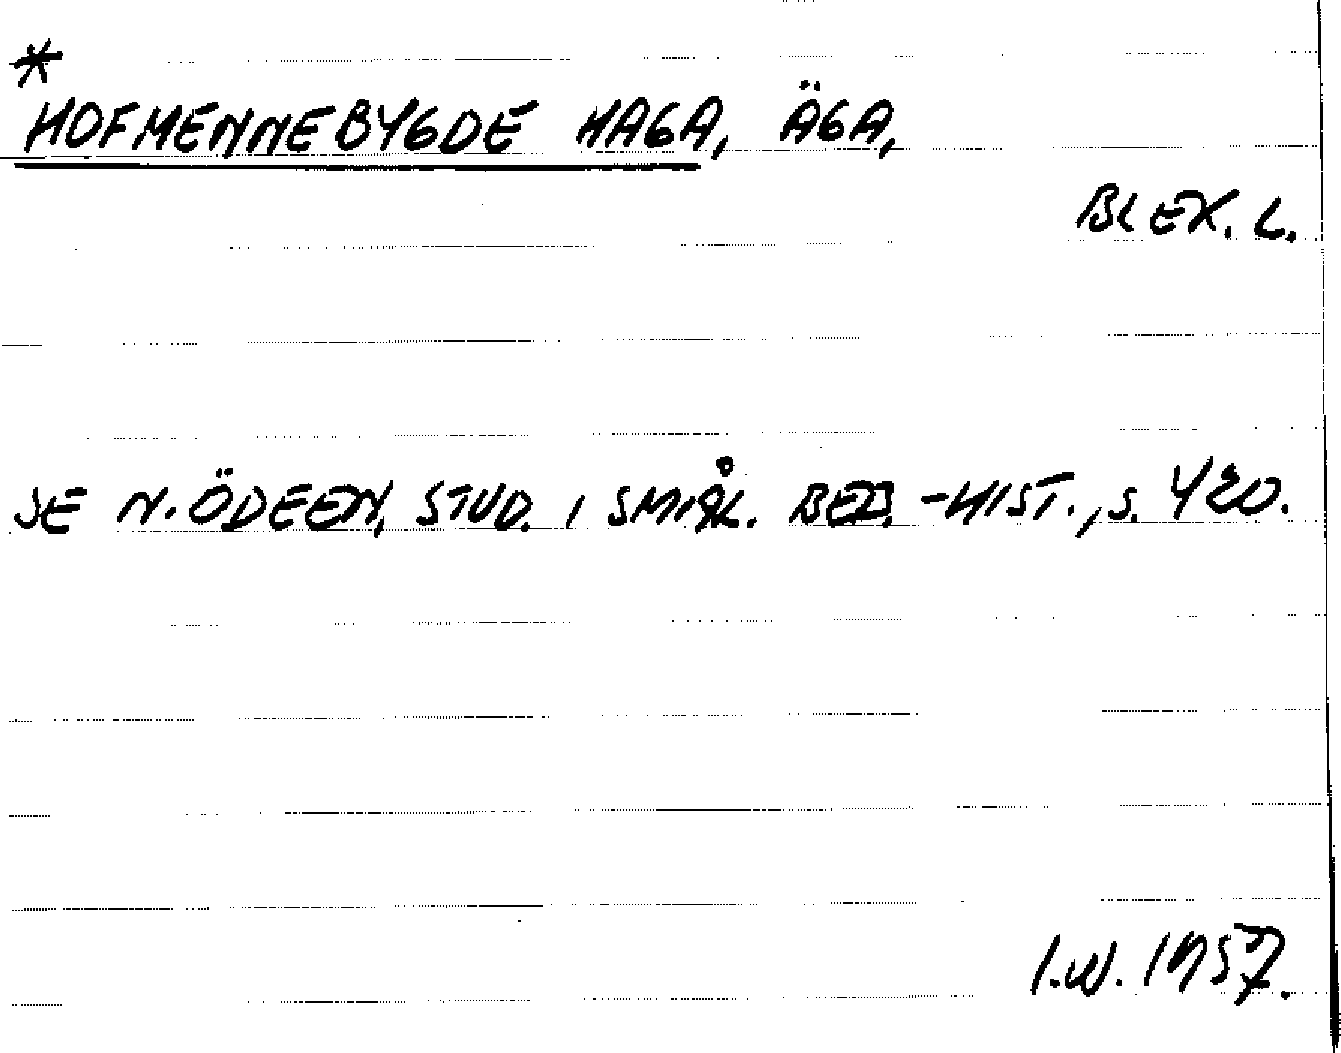 *
HOFMENNEBYGDE HAGA, ÄGA,
BLEK. L.
SE N. ÖDEEN, STUD. I SMÅL. BEB.-HIST., S. 420.
I.W. 1957.